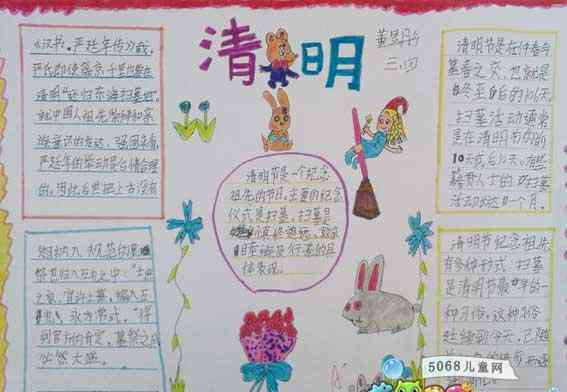 清明
董
三.四
《汉书·严延年传》载,
严氏即使离京千里也要在
清明"还归东海扫墓地"。
就中国人祖先崇拜和亲
族意识的发达、强固来看,
严延年的举动是合情合理
的。因此后世把上古没有
纳入规范的墓
祭也归入五礼之中:"士庶
之家,宜许上墓,编入五
礼,永为常式。"得
到官方的肯定,墓祭之风
必然大盛。
清明节是一个纪念
祖先的节日。主要的纪念
仪式是扫墓,扫墓是
慎终追远、
亲及行孝的具
体表现。
清明节是在仲春与
暮春之交,也就是
冬至后的106天。
扫墓活动通常
是在清明节的前
10天或后10天。有些
籍贯人士的扫墓
活动长达一个月。
清明节纪念祖先
有多种形式,扫墓
是清明节最早的一
种习俗,这种习俗
延续到今天,已随
5068儿童网